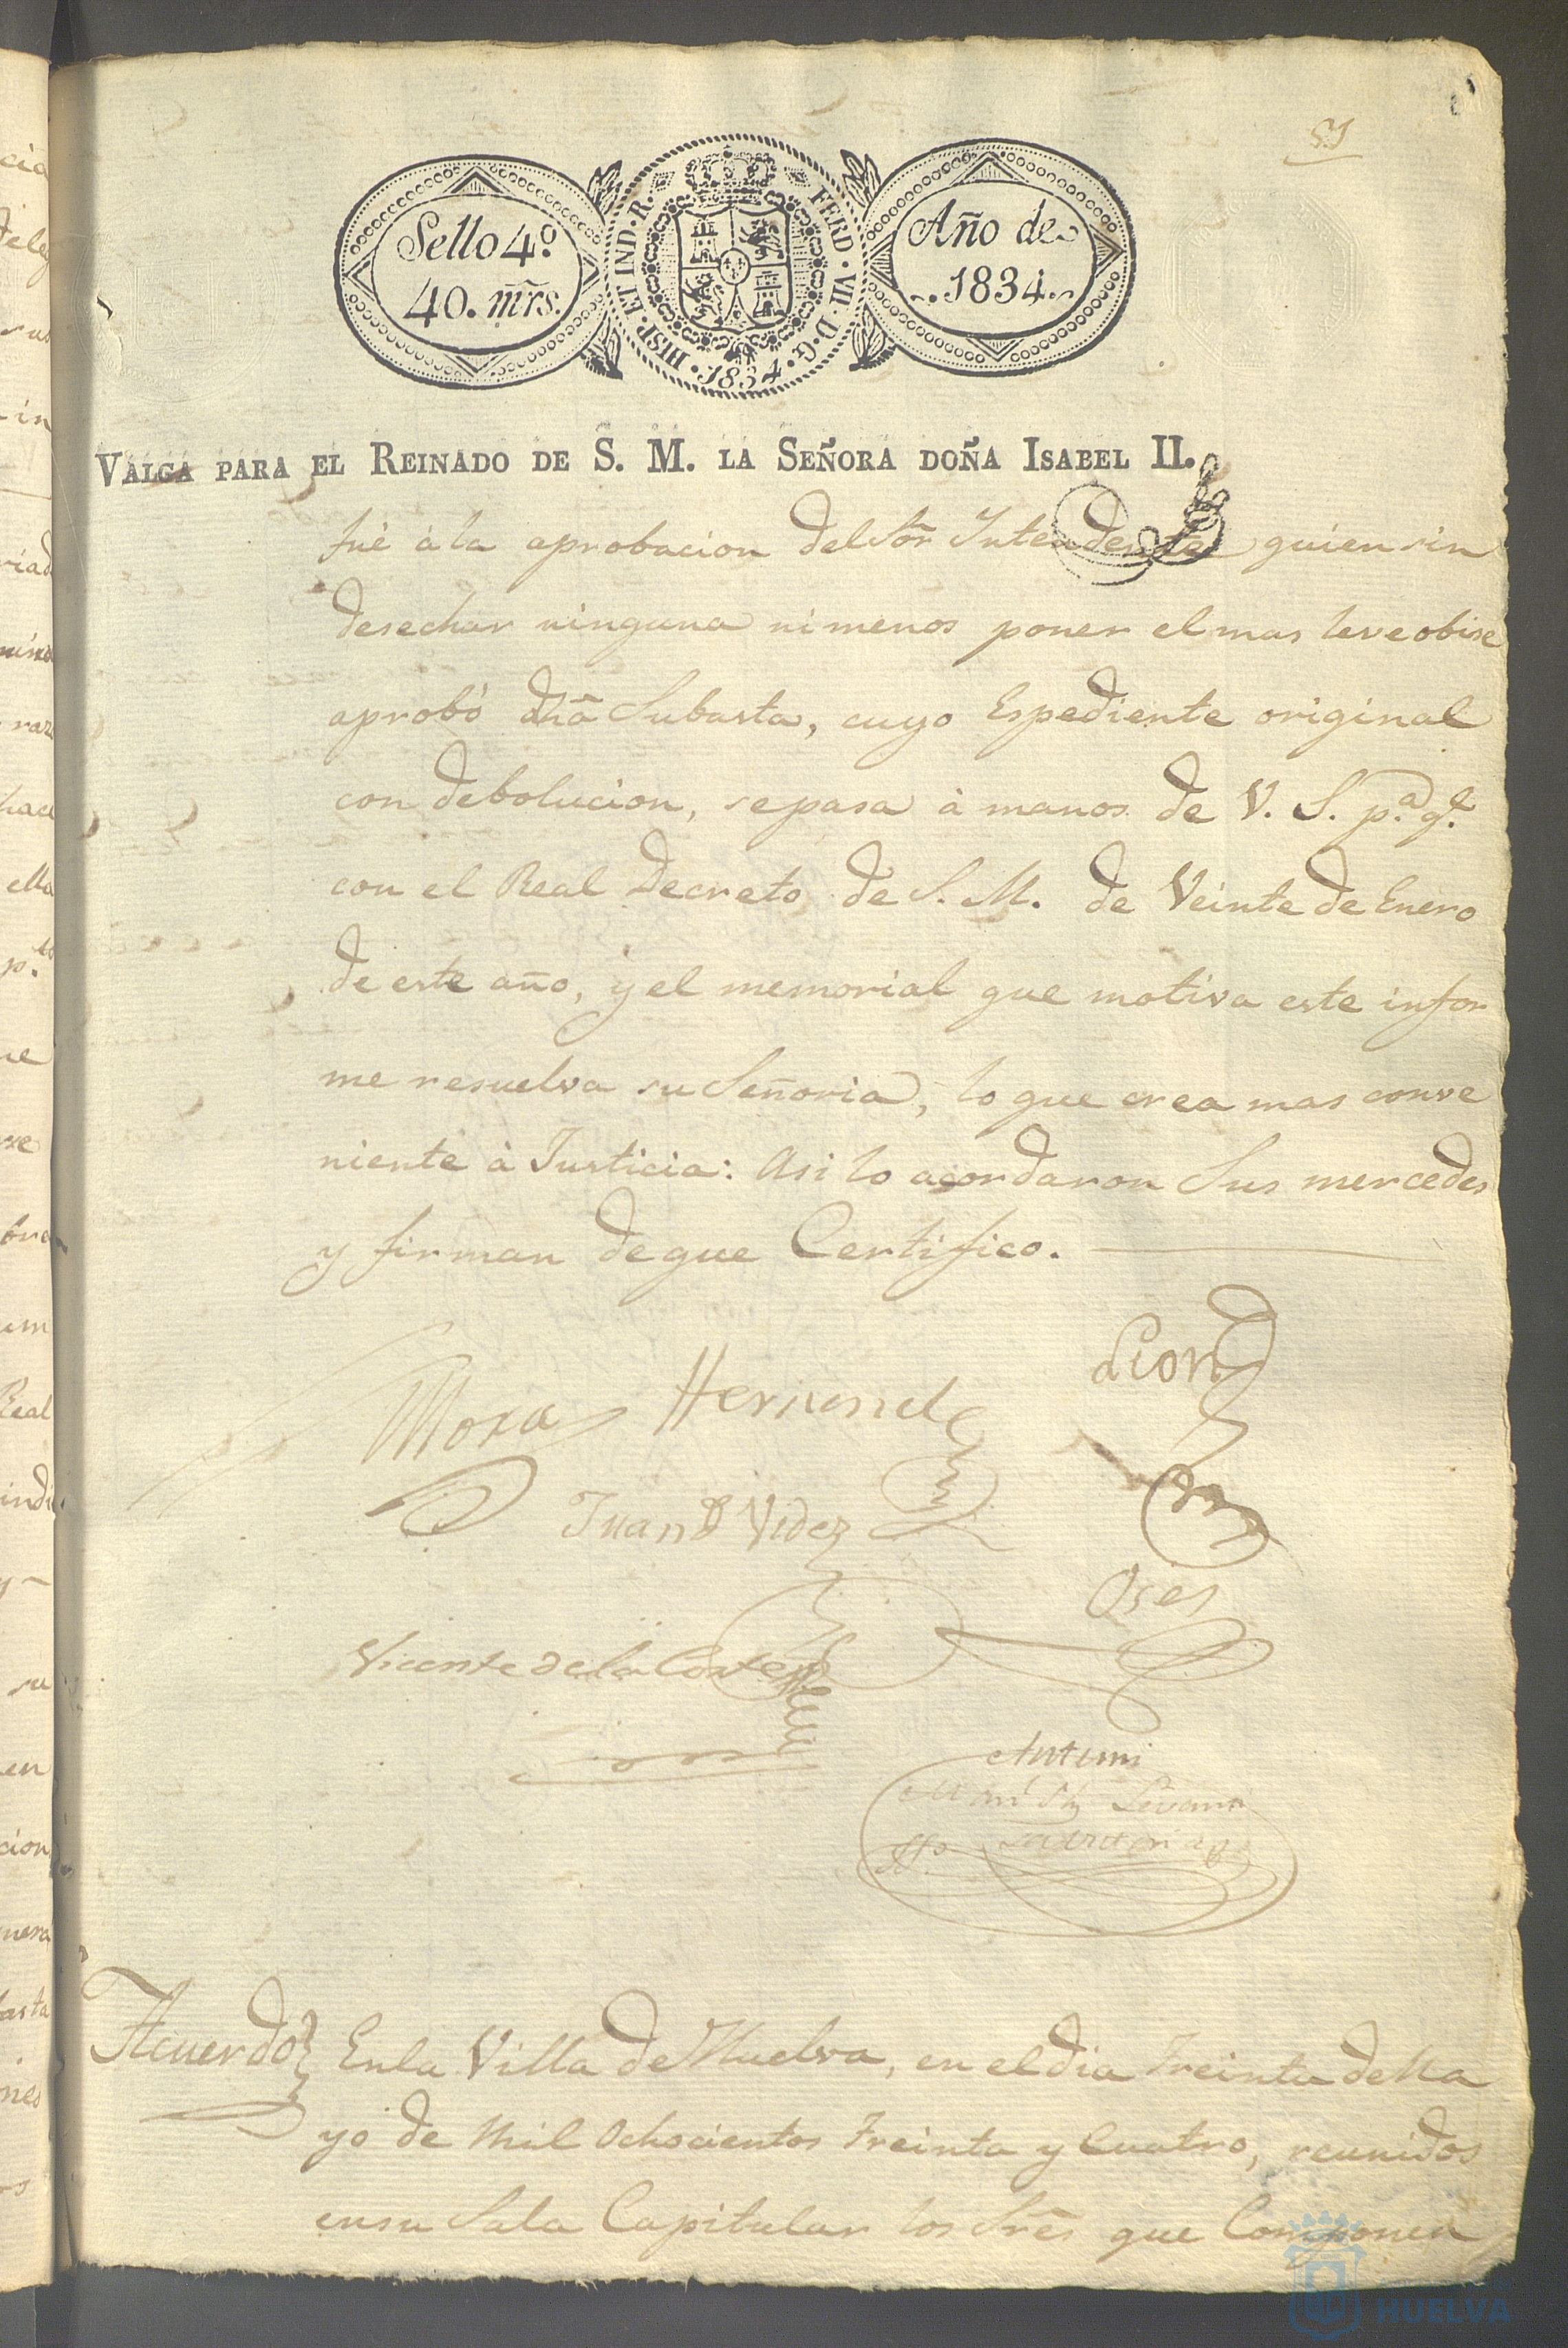 51
Sello 4º
40. mrs.
HISP. ET IND. R. FERD. VII. D. G. 1834.
Año de
1834.
VALGA PARA EL REINADO DE S. M. LA SEÑORA DOÑA ISABEL II.
fué à la aprobacion del Sõr Intendente quien sin
desechar ninguna ni menos poner el mas leve obise
aprobó dhã Subasta, cuyo Espediente original
con debolucion, se pasa à manos de V. S. p.ª q.e
con el Real Decreto de S. M. de Veinte de Enero
de este año, y el memorial que motiva este infor
me resuelva su Señoria, lo que crea mas conve
niente à Justicia: Asi lo acordaron Sus mercedes
y firman de que Certifico.
Mora Hernand
Leon
Juan Videz
Oses
Vicente de la Corte
Antemi
Acuerdo En la Villa de Huelva, en el dia Treinta de Ma
yo de Mil Ochocientos Treinta y Cuatro, reunidos
en su Sala Capitular los Srẽs que Componen
HUELVA